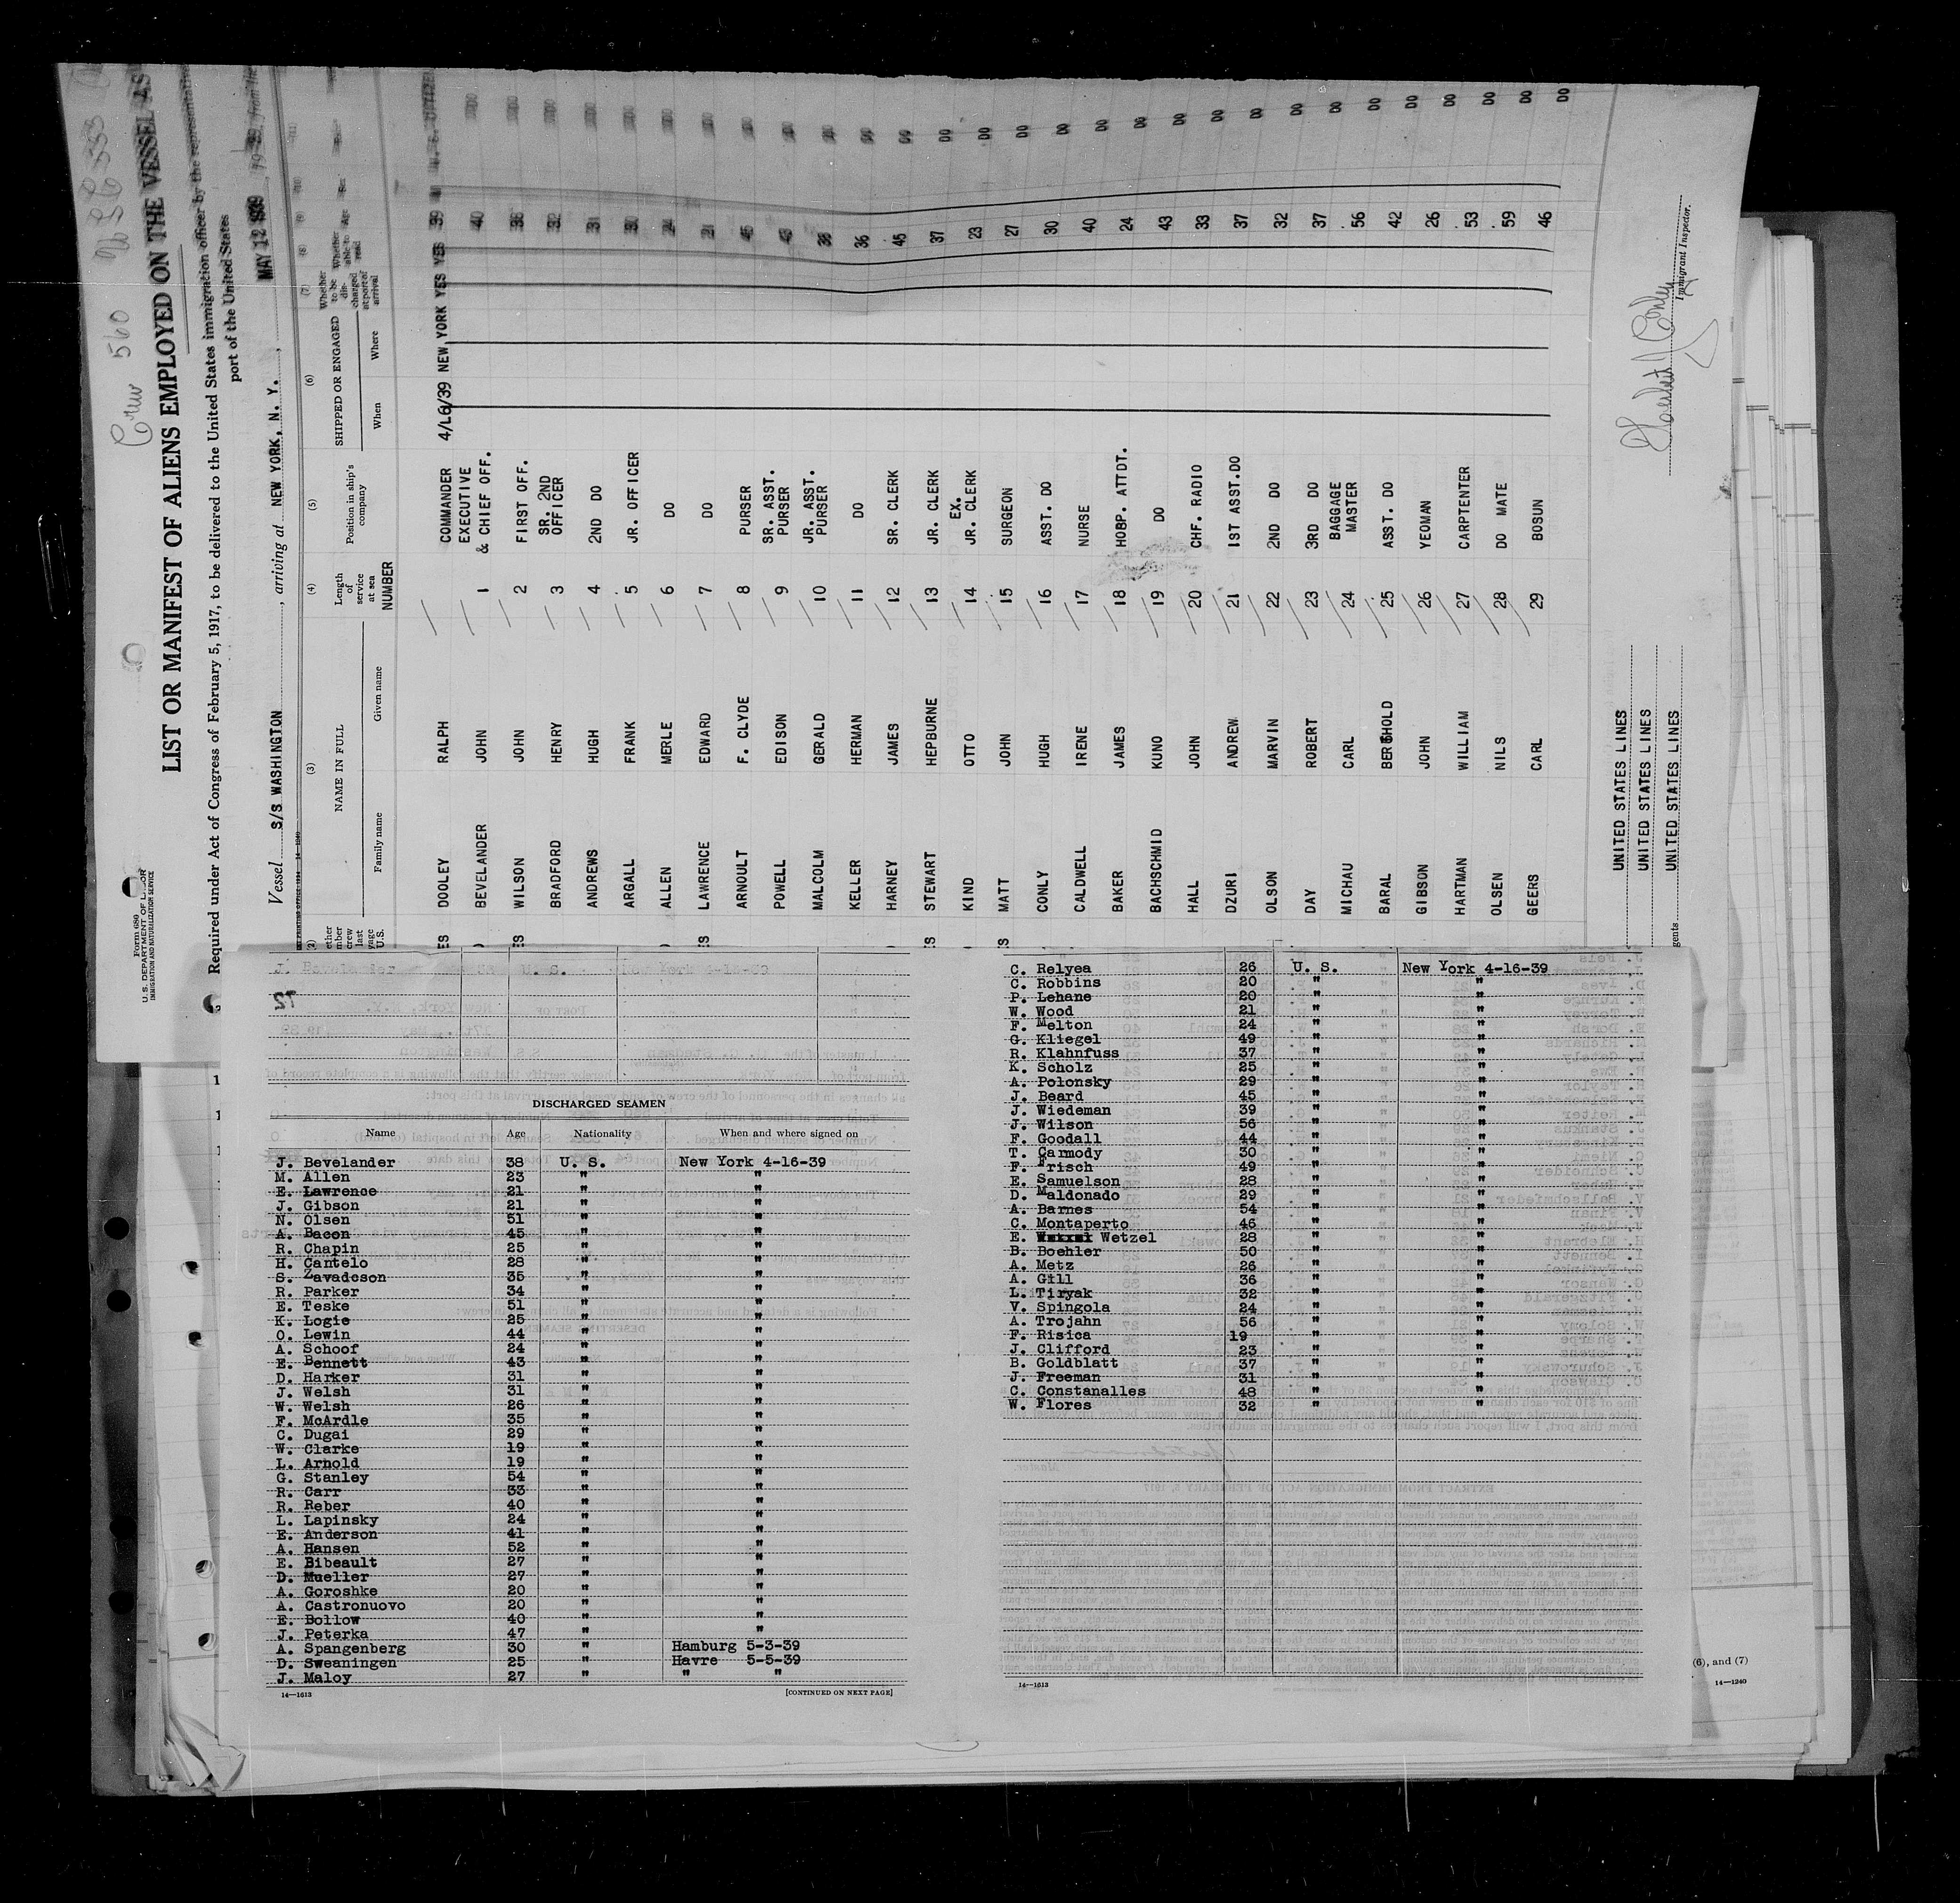 Crew 560
Form 680
U. S. DEPARTMENT OF LABOR
IMMIGRATION AND NATURALIZATION SERVICE
LIST OR MANIFEST OF ALIENS EMPLOYED ON THE VESSEL AS
Required under Act of Congress of February 5, 1917, to be delivered to the United States immigration officer by the representative
port of the United States
Vessel S/S WASHINGTON, arriving at NEW YORK, N. Y., MAY 12 1939, 19 from the
(2) (3) (4) (5) (6) (7) (8) (9)
NAME IN FULL
Family name Given name
Length of service at sea
NUMBER
Position in ship's company
SHIPPED OR ENGAGED
When Where
Whether to be discharged at port of arrival
Whether able to read
Age
DOOLEY RALPH COMMANDER 4/L6/39 NEW YORK YES YES 39
BEVELANDER JOHN 1 EXECUTIVE & CHIEF OFF. 40 DO
WILSON JOHN 2 FIRST OFF. DO
BRADFORD HENRY 3 SR. 2ND OFFICER DO
ANDREWS HUGH 4 2ND DO 31 DO
ARGALL FRANK 5 JR. OFFICER DO
ALLEN MERLE 6 DO 24 DO
LAWRENCE EDWARD 7 DO 21 DO
ARNOULT F. CLYDE 8 PURSER 45 DO
POWELL EDISON 9 SR. ASST. PURSER 43 DO
MALCOLM GERALD 10 JR. ASST. PURSER DO
KELLER HERMAN 11 DO 36 DO
HARNEY JAMES 12 SR. CLERK 45 DO
STEWART HEPBURNE 13 JR. CLERK 37 DO
KIND OTTO 14 EX. JR. CLERK 23 DO
MATT JOHN 15 SURGEON 27 DO
CONLY HUGH 16 ASST. DO 30 DO
CALDWELL IRENE 17 NURSE 40 DO
BAKER JAMES 18 HOBP. ATTDT. 24 DO
BACHSCHMID KUNO 19 DO 43 DO
HALL JOHN 20 CHF. RADIO 33 DO
DZURI ANDREW 21 1ST ASST.DO 37 DO
OLSON MARVIN 22 2ND DO 32 DO
DAY ROBERT 23 3RD DO 37 DO
MICHAU CARL 24 BAGGAGE MASTER 56 DO
BARAL BERTHOLD 25 ASST. DO 42 DO
GIBSON JOHN 26 YEOMAN 26 DO
HARTMAN WILLIAM 27 CARPTENTER 53 DO
OLSEN NILS 28 DO MATE 59 DO
GEERS CARL 29 BOSUN 46 DO
UNITED STATES LINES
UNITED STATES LINES
UNITED STATES LINES
Immigrant Inspector.
J. Bevelander U. S. New York 4-16-39
DISCHARGED SEAMEN
Name Age Nationality When and where signed on
J. Bevelander 38 U. S. New York 4-16-39
M. Allen 23 " "
E. Lawrence 21 " "
J. Gibson 21 " "
N. Olsen 51 " "
A. Bacon 45 " "
R. Chapin 25 " "
H. Cantelo 28 " "
S. Zavadcson 35 " "
R. Parker 34 " "
E. Teske 51 " "
K. Logie 25 " "
O. Lewin 44 " "
A. Schoof 24 " "
E. Bennett 43 " "
D. Harker 31 " "
J. Welsh 31 " "
W. Welsh 26 " "
F. McArdle 35 " "
C. Dugai 29 " "
W. Clarke 19 " "
L. Arnold 19 " "
G. Stanley 54 " "
R. Carr 33 " "
R. Reber 40 " "
L. Lapinsky 24 " "
E. Anderson 41 " "
A. Hansen 52 " "
E. Bibeault 27 " "
D. Mueller 27 " "
A. Goroshke 20 " "
A. Castronuovo 20 " "
E. Bollow 40 " "
J. Peterka 47 " "
A. Spangenberg 30 " Hamburg 5-3-39
D. Sweaningen 25 " Havre 5-5-39
J. Maloy 27 " " "
14—1613 [CONTINUED ON NEXT PAGE]
C. Relyea 26 U. S. New York 4-16-39
C. Robbins 20 " "
P. Lehane 20 " "
W. Wood 21 " "
F. Melton 24 " "
G. Kliegel 49 " "
R. Klahnfuss 37 " "
K. Scholz 25 " "
A. Polonsky 29 " "
J. Beard 45 " "
J. Wiedeman 39 " "
J. Wilson 56 " "
F. Goodall 44 " "
T. Carmody 30 " "
F. Frisch 49 " "
E. Samuelson 28 " "
D. Maldonado 29 " "
A. Barnes 54 " "
C. Montaperto 46 " "
E. Wetzel 28 " "
B. Boehler 50 " "
A. Metz 26 " "
A. Gill 36 " "
L. Tiryak 32 " "
V. Spingola 24 " "
A. Trojahn 56 " "
F. Risica 19 " "
J. Clifford 23 " "
B. Goldblatt 37 " "
J. Freeman 31 " "
C. Constanalles 48 " "
W. Flores 32 " "
14—1613
(6), and (7)
14—1240